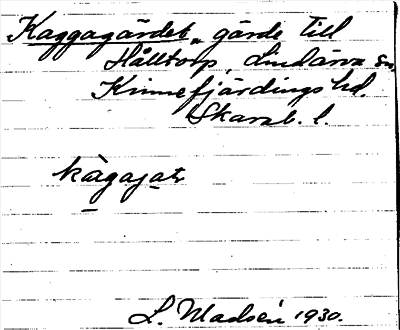 Kaggagärdet, gärde till
Hålltorp, Lindärva sn,
Kinnefjärdings hd,
Skarab. l.
L. Madsén 1930.